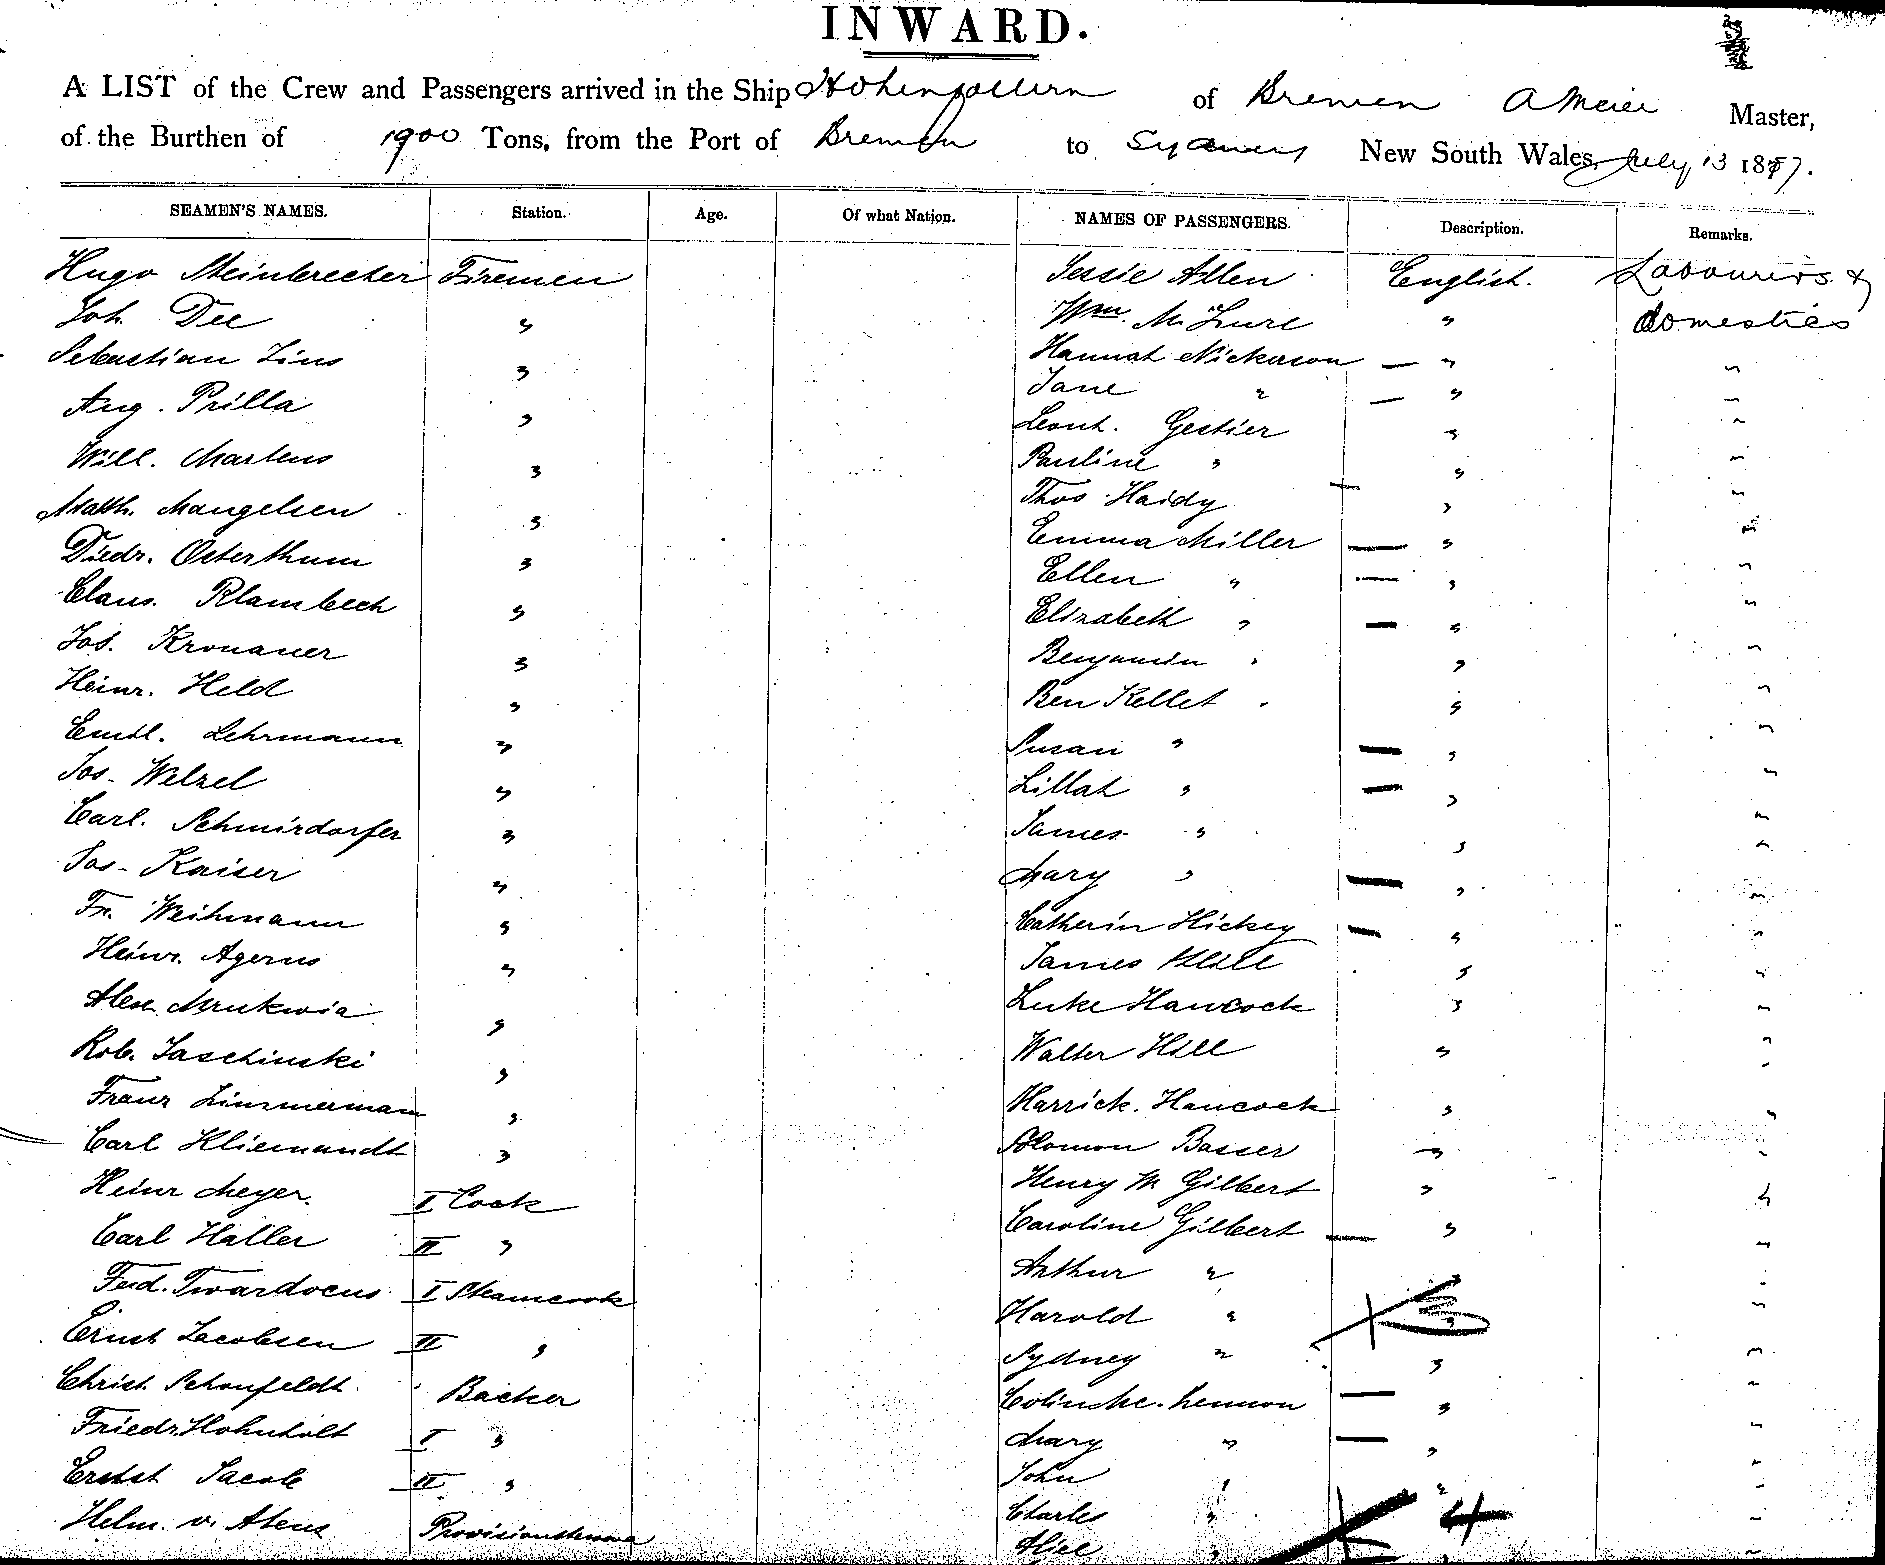 INWARD.
A LIST of the Crew and Passengers arrived in the Ship Hohenzollern of Bremen A Meier Master,
of the Burthen of 1900 Tons, from the Port of Bremen to Sydney New South Wales, July 13 1887.
SEAMEN'S NAMES. Station. Age. Of what Nation. NAMES OF PASSENGERS. Description. Remarks.
Hugo Meinbrecker Firemen Jessie Allen English. Labourers &
Joh. Dee " Wm. Mc " domesties
Sebastian Zins " Hannah Nickerson — " "
Aug. Prilla " Jane " — " "
Will. Martens " Leont. Gestier " "
Math. Mangelsen " Pauline " " "
Diedr. Osterthum " Thos Haidy " "
Claus. Rlambech " Emma Miller — " "
Jos. Kronauer " Ellen " — " "
Heinr. Held " Elizabeth " — " "
Emil. Lehrmann " Benjamin " " "
Jos. Welzel " Ben Kellet " "
Carl. Schmirdorfer " Susan " — " "
Jos. Kaiser " Lillah " — " "
Fr. Weihmann " James " " "
Heinr. Agerns " Mary " — " "
Alex. Mrukwia " Catherin Hickey — " "
Rob. Jaschinski " James Hill " "
Franz Zimmermann " Luke Hancock " "
Carl Kliemandt " Walter Hill " "
Heinr Meyer. I Cook Harrick. Hancock " "
Carl Haller II " Solomon Basser " "
Ferd. Twardocus I Steamcook Henry W. Gilbert " "
Ernst Jacobsen II " Caroline Gilbert — " "
Christ. Schonfeldt. Backer Arthur " "
Friedr. Hohnholt I " Harold " "
Ernst Jacob II " Sydney " " "
Helm. v. Provisions Colin Mc. Lennon — " "
Mary " — " "
John " " "
Charles " 4 "
Alice " "